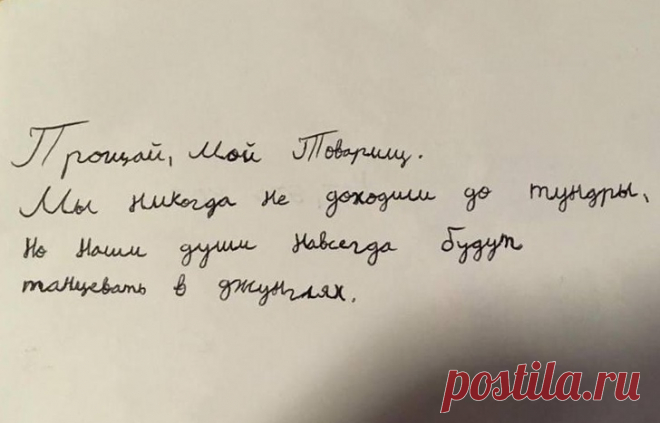 Прощай, Мой Товарищ.
Мы никогда не доходили до тундры,
Но наши души навсегда будут
танцевать в джунглях.
postila.ru